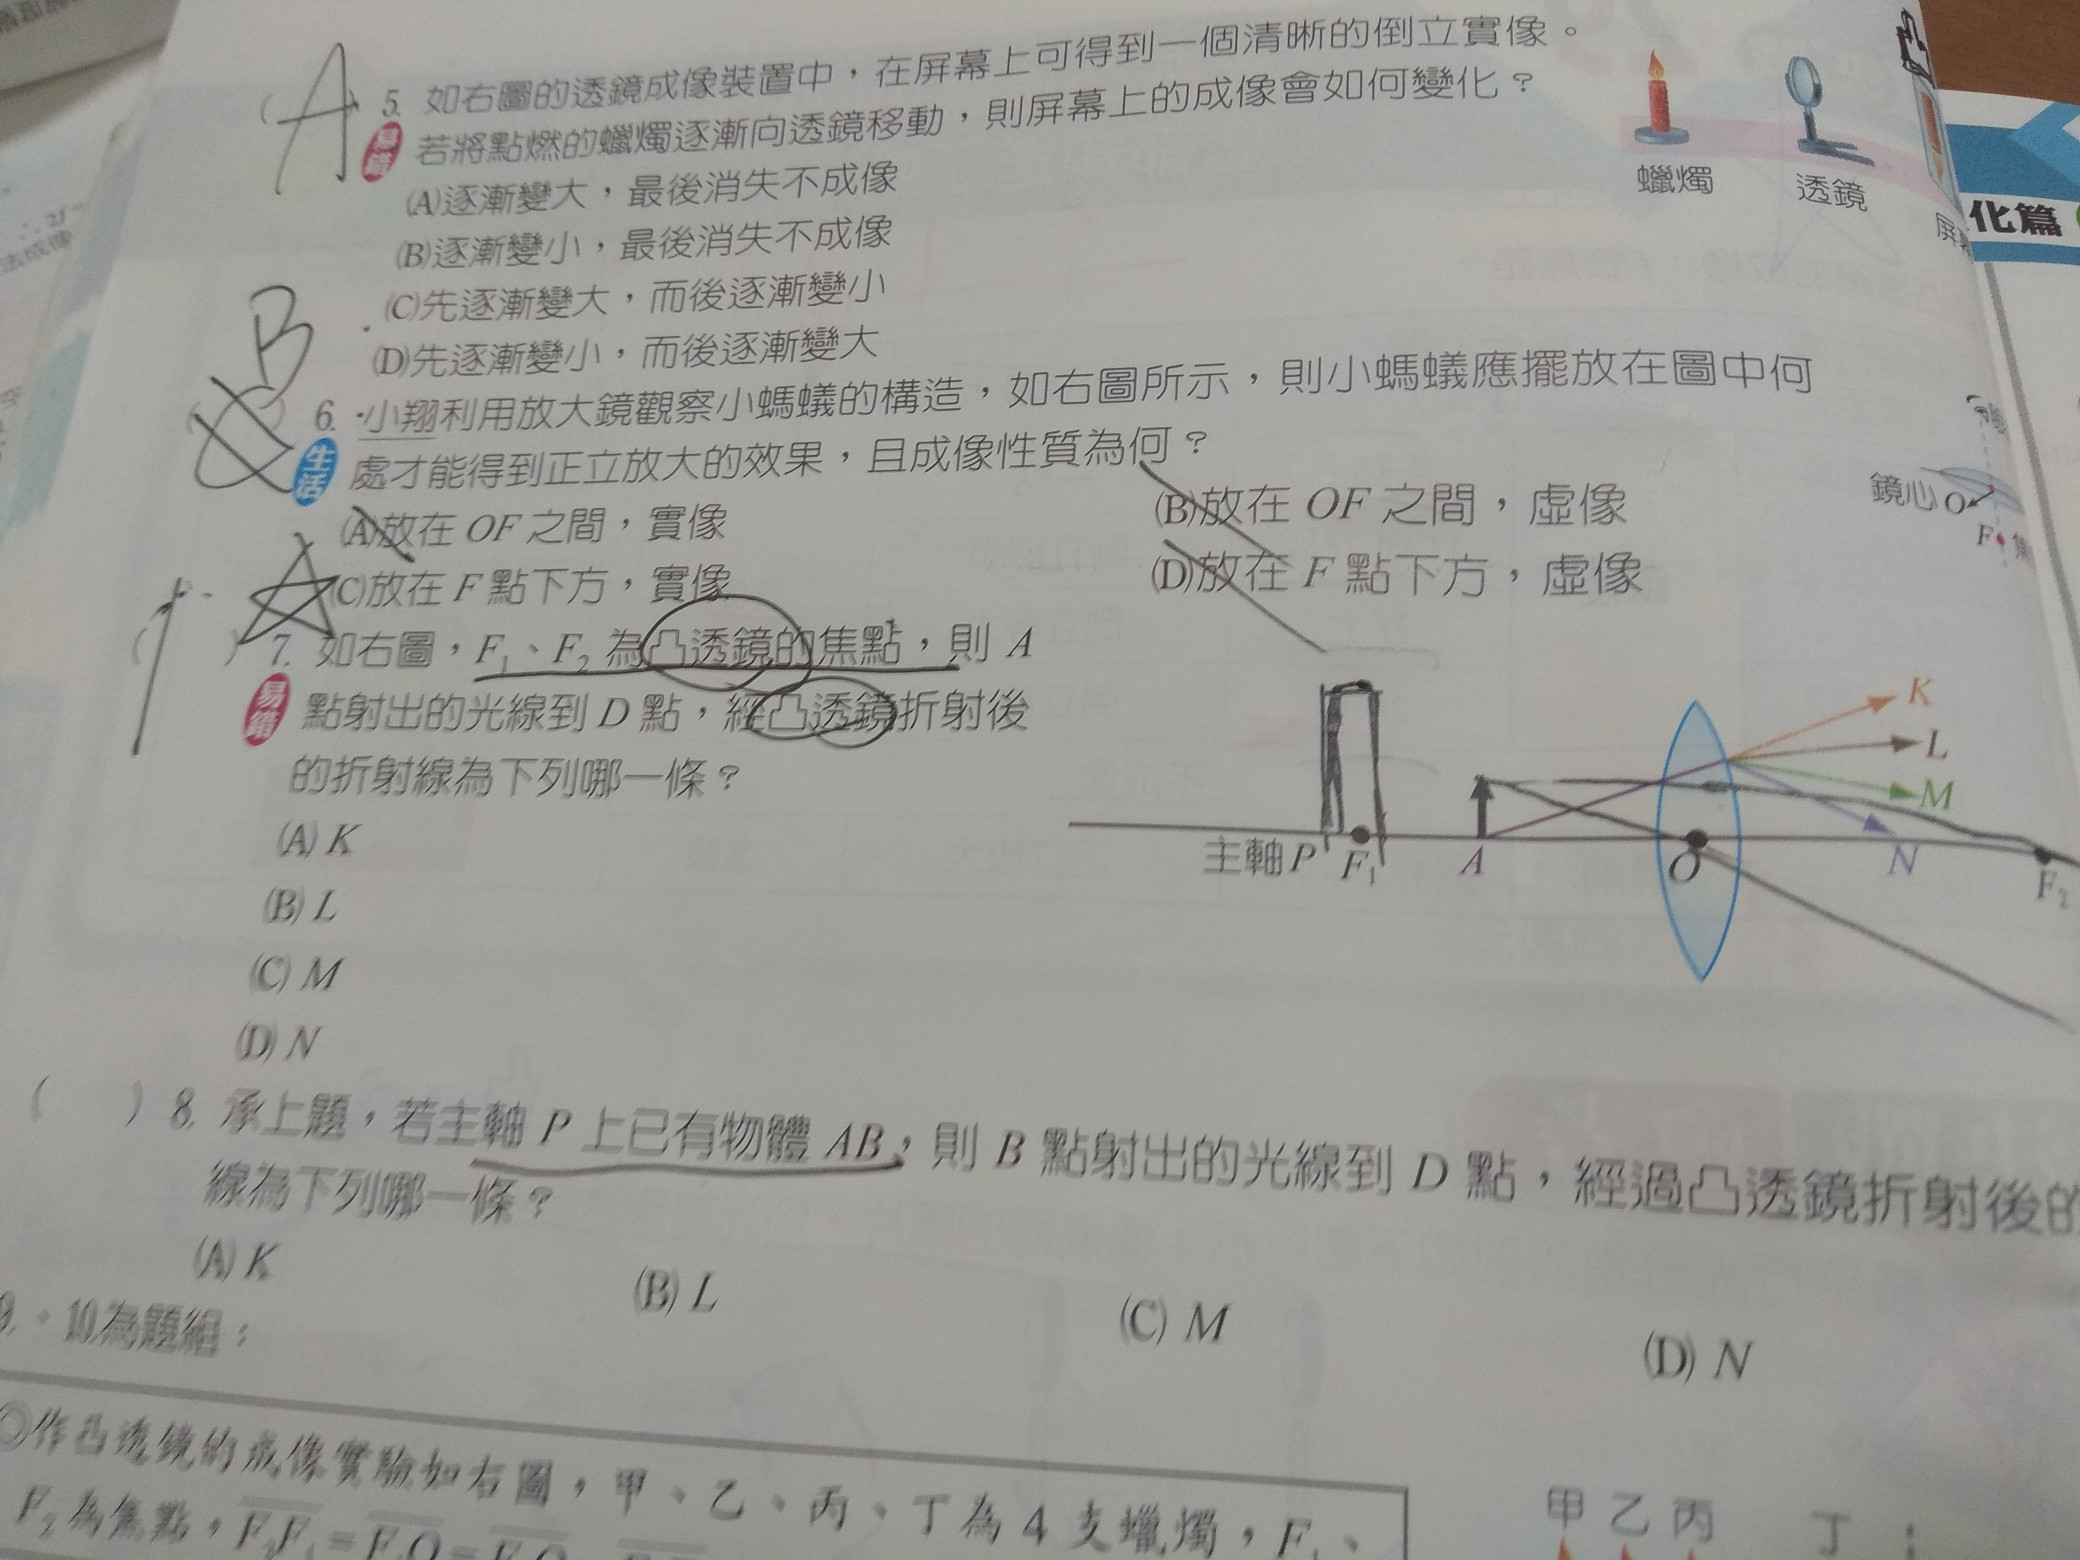 A
5. 如右圖的透鏡成像裝置中，在屏幕上可得到一個清晰的倒立實像。
易錯 若將點燃的蠟燭逐漸向透鏡移動，則屏幕上的成像會如何變化？
(A)逐漸變大，最後消失不成像
(B)逐漸變小，最後消失不成像
(C)先逐漸變大，而後逐漸變小
(D)先逐漸變小，而後逐漸變大
蠟燭
透鏡
屏
化篇
B
6. 小翔利用放大鏡觀察小螞蟻的構造，如右圖所示，則小螞蟻應擺放在圖中何
生活 處才能得到正立放大的效果，且成像性質為何？
(A)放在 OF 之間，實像
(B)放在 OF 之間，虛像
(C)放在 F 點下方，實像
(D)放在 F 點下方，虛像
鏡心 O
F
( ) 7. 如右圖，F₁、F₂ 為凸透鏡的焦點，則 A
易錯 點射出的光線到 D 點，經凸透鏡折射後
的折射線為下列哪一條？
(A) K
(B) L
(C) M
(D) N
K
L
M
N
主軸 P F₁ A O F₂
( ) 8. 承上題，若主軸 P 上已有物體 AB，則 B 點射出的光線到 D 點，經過凸透鏡折射後的
線為下列哪一條？
(A) K (B) L (C) M (D) N
9.、10.為題組：
作凸透鏡的成像實驗如右圖，甲、乙、丙、丁為 4 支蠟燭，F₁、
F₂ 為焦點，
甲 乙 丙 丁